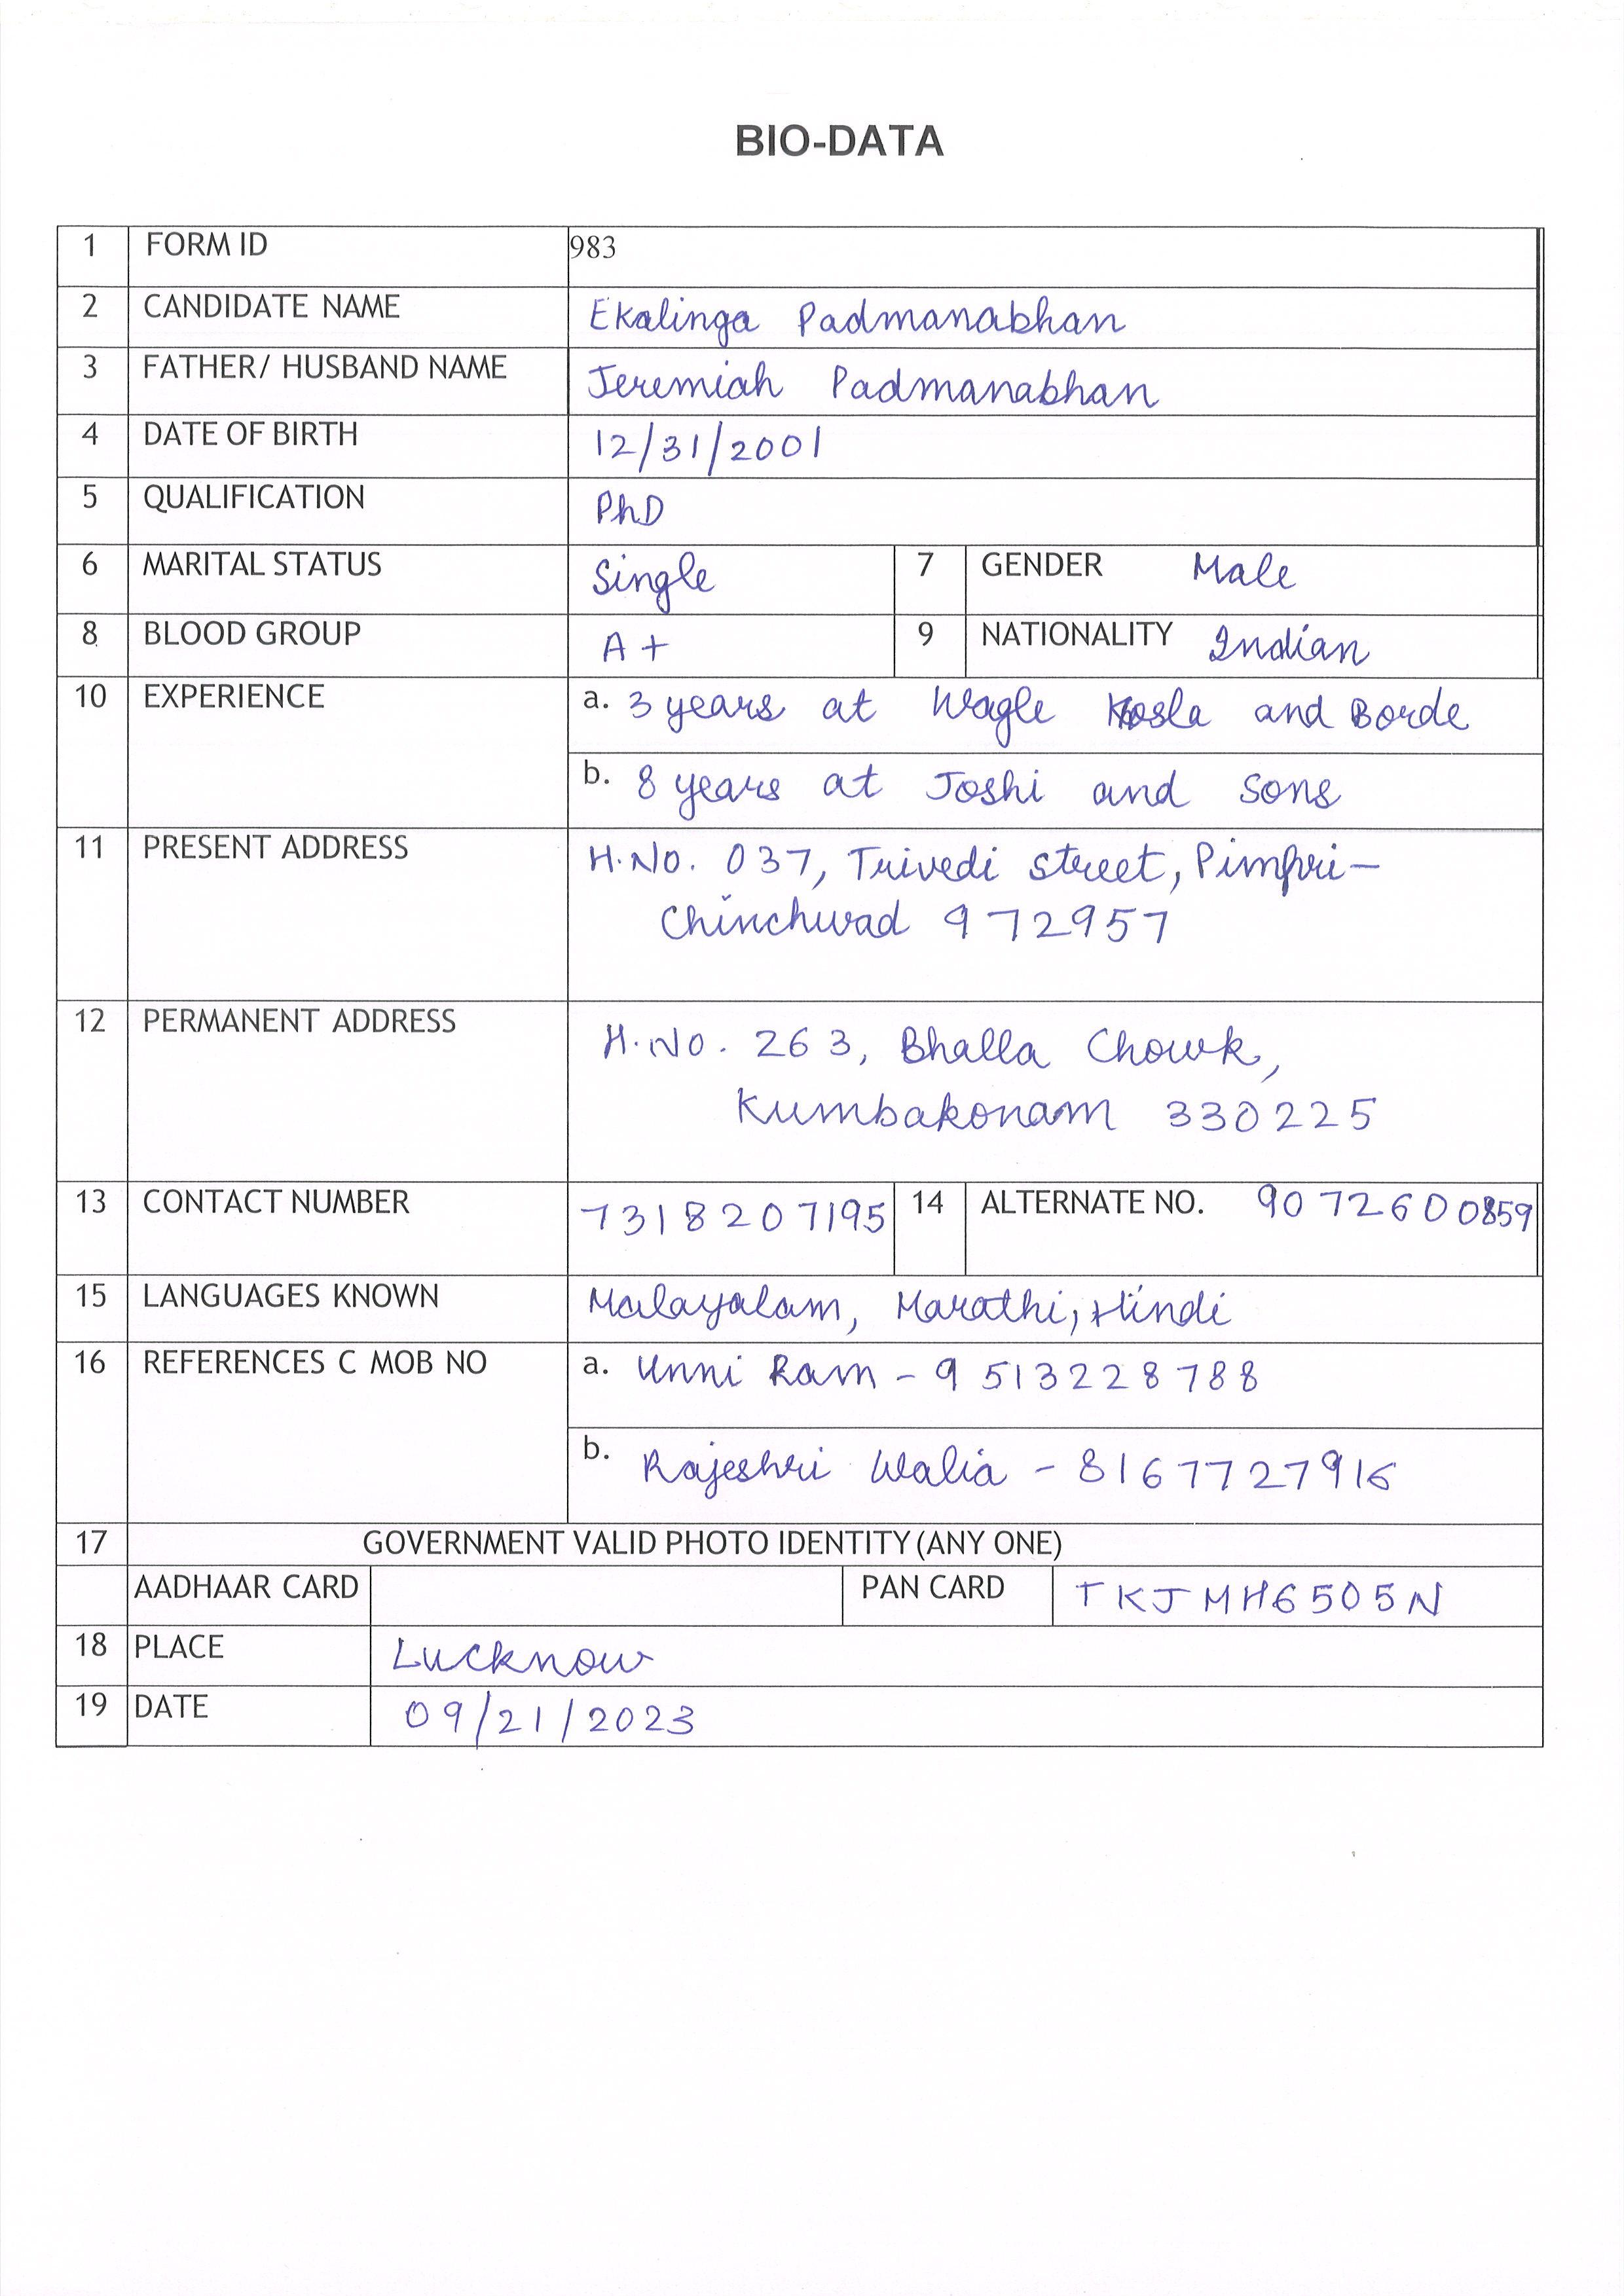 BIO-DATA
1 FORM ID 983
2 CANDIDATE NAME Ekalinga Padmanabhan
3 FATHER/ HUSBAND NAME Jeremiah Padmanabhan
4 DATE OF BIRTH 12/31/2001
5 QUALIFICATION PhD
6 MARITAL STATUS Single 7 GENDER Male
8 BLOOD GROUP A+ 9 NATIONALITY Indian
10 EXPERIENCE a. 3 years at Wagle Kosla and Borde
b. 8 years at Joshi and Sons
11 PRESENT ADDRESS H.No. 037, Trivedi Street, Pimpri-
Chinchwad 972957
12 PERMANENT ADDRESS H.No. 263, Bhalla Chowk,
Kumbakonam 330225
13 CONTACT NUMBER 7318207195 14 ALTERNATE NO. 9072600859
15 LANGUAGES KNOWN Malayalam, Marathi, Hindi
16 REFERENCES C MOB NO a. Unni Ram - 9513228788
b. Rajeshri Walia - 8167727916
17 GOVERNMENT VALID PHOTO IDENTITY (ANY ONE)
AADHAAR CARD PAN CARD TKJMH6505N
18 PLACE Lucknow
19 DATE 09/21/2023